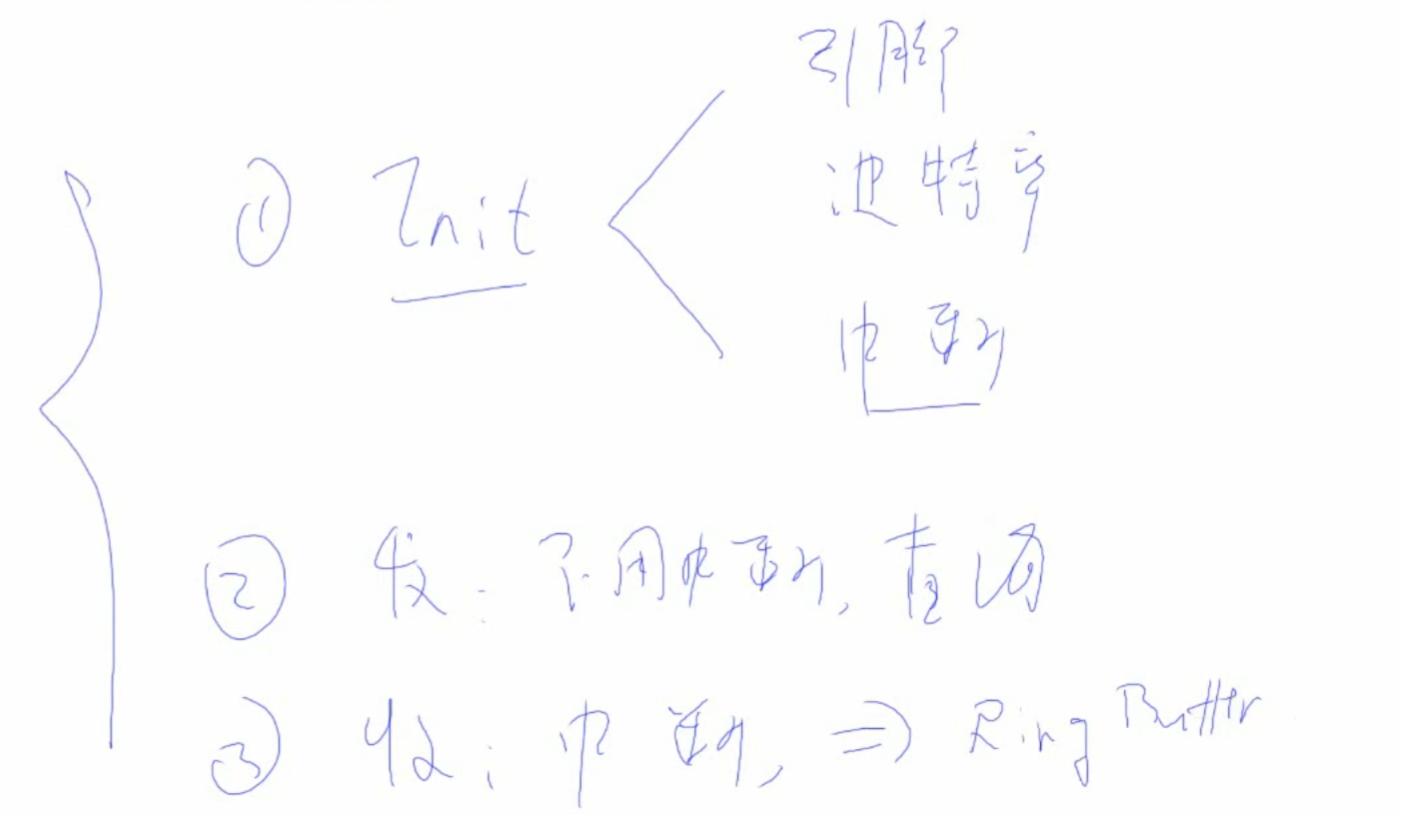 引脚
① Init
波特率
中断
② 发: 不用中断, 查询
③ 收: 中断, ⇒ Ring Buffer